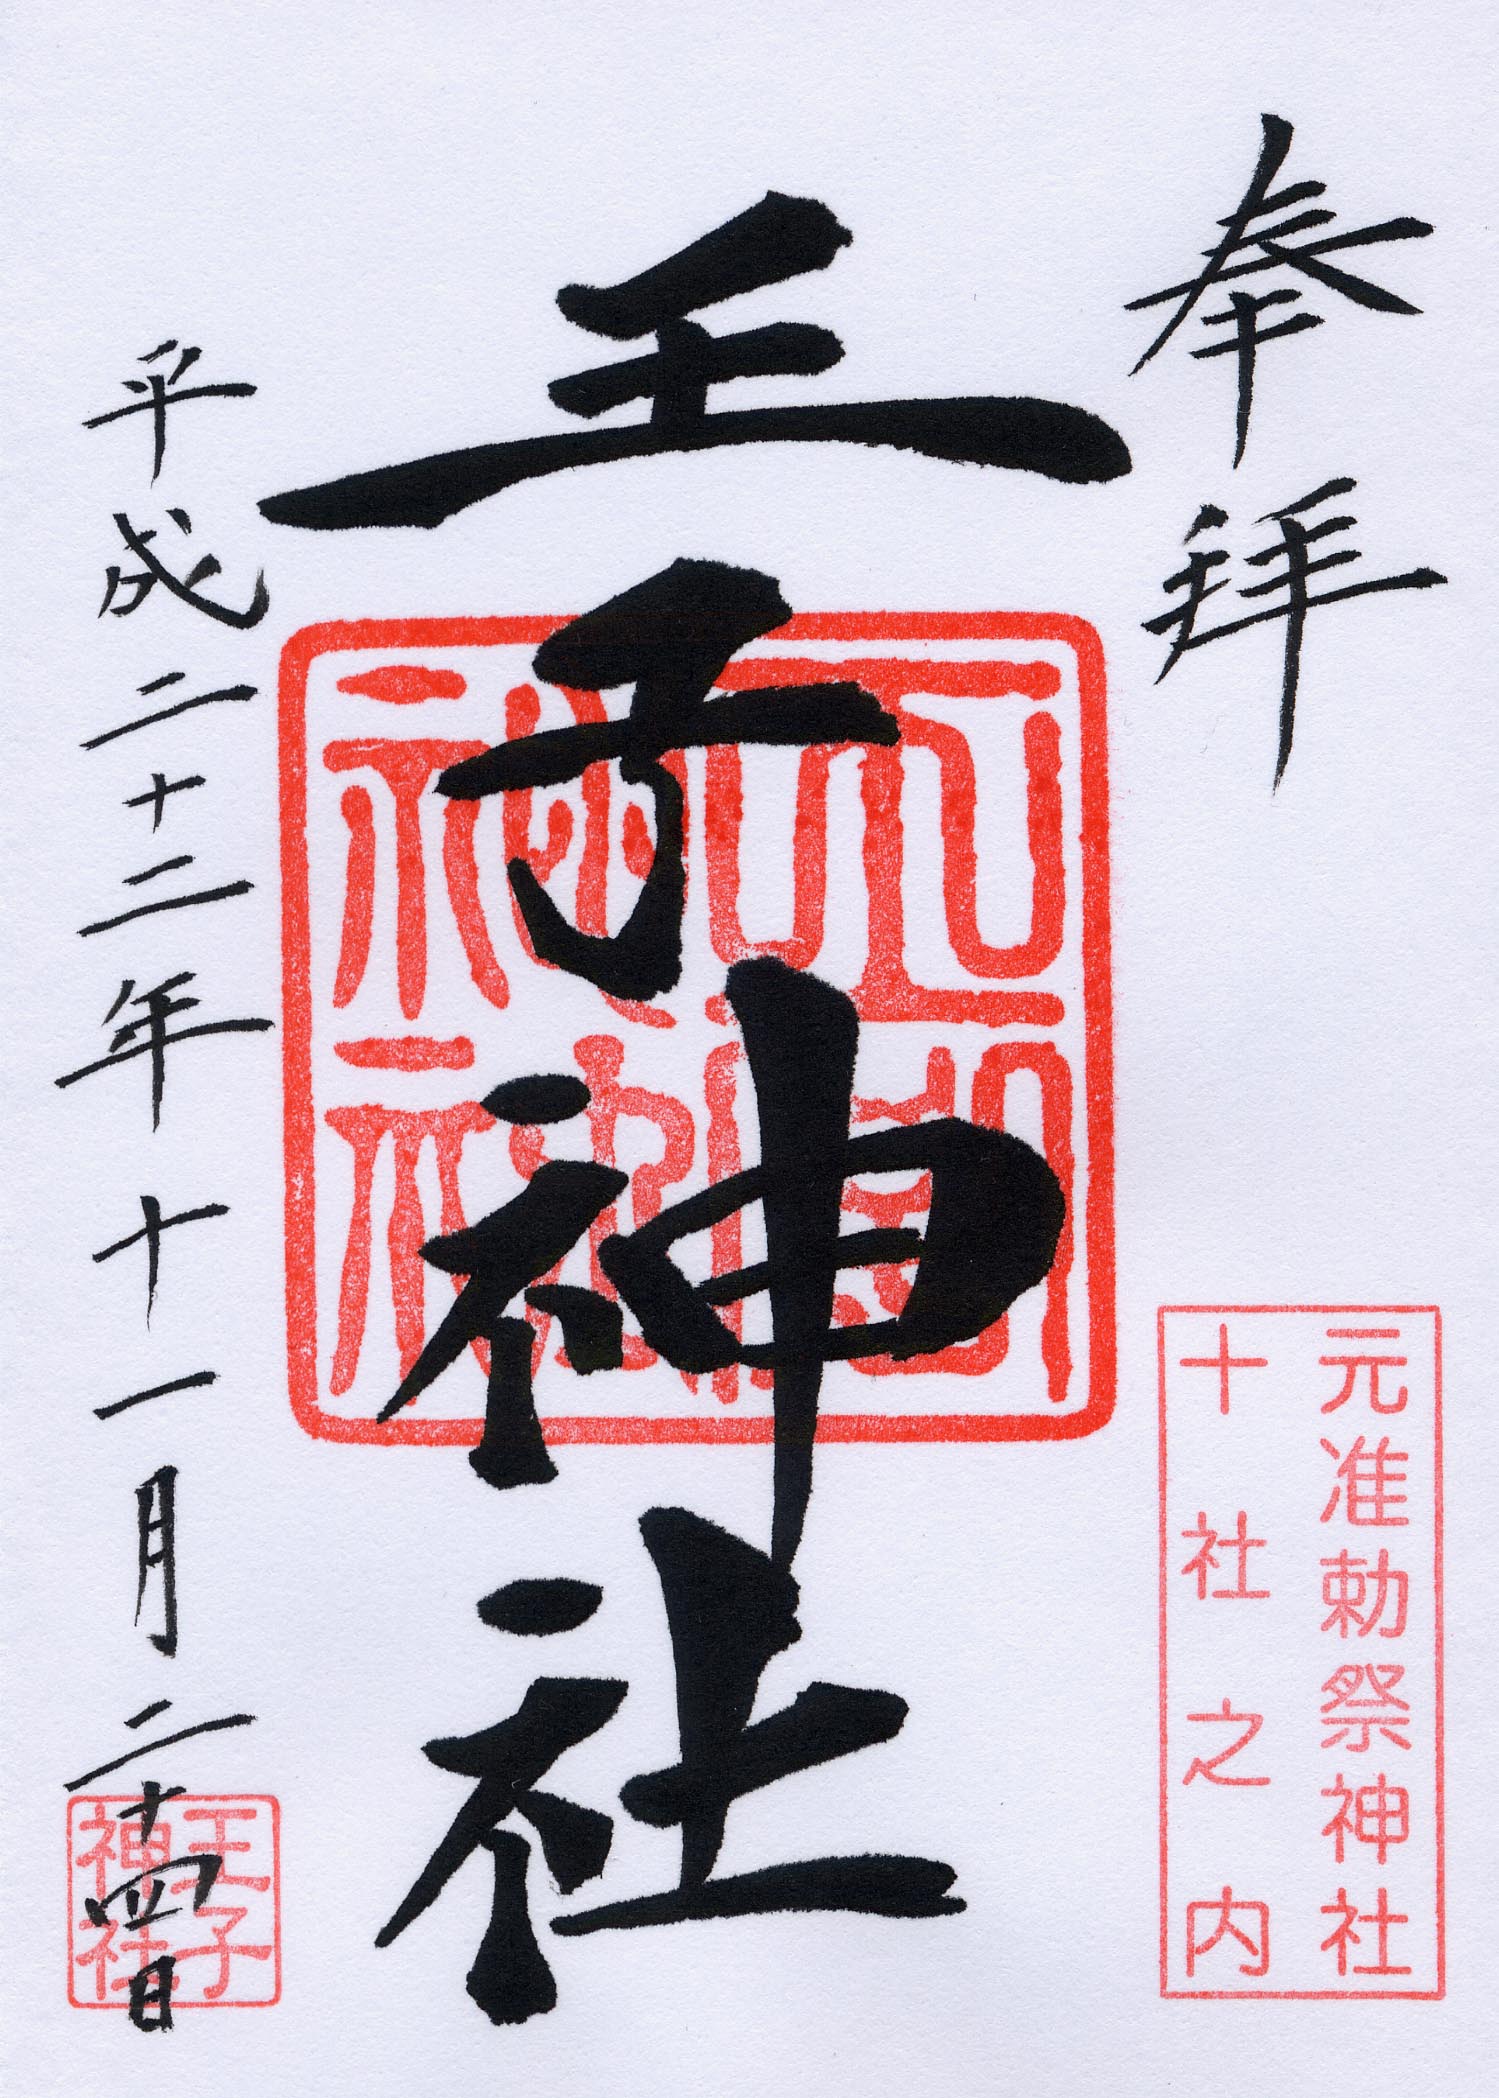 奉拝
元准勅祭神社
十社之内
王子神社
平成二十二年十一月二十四日
王子
神社